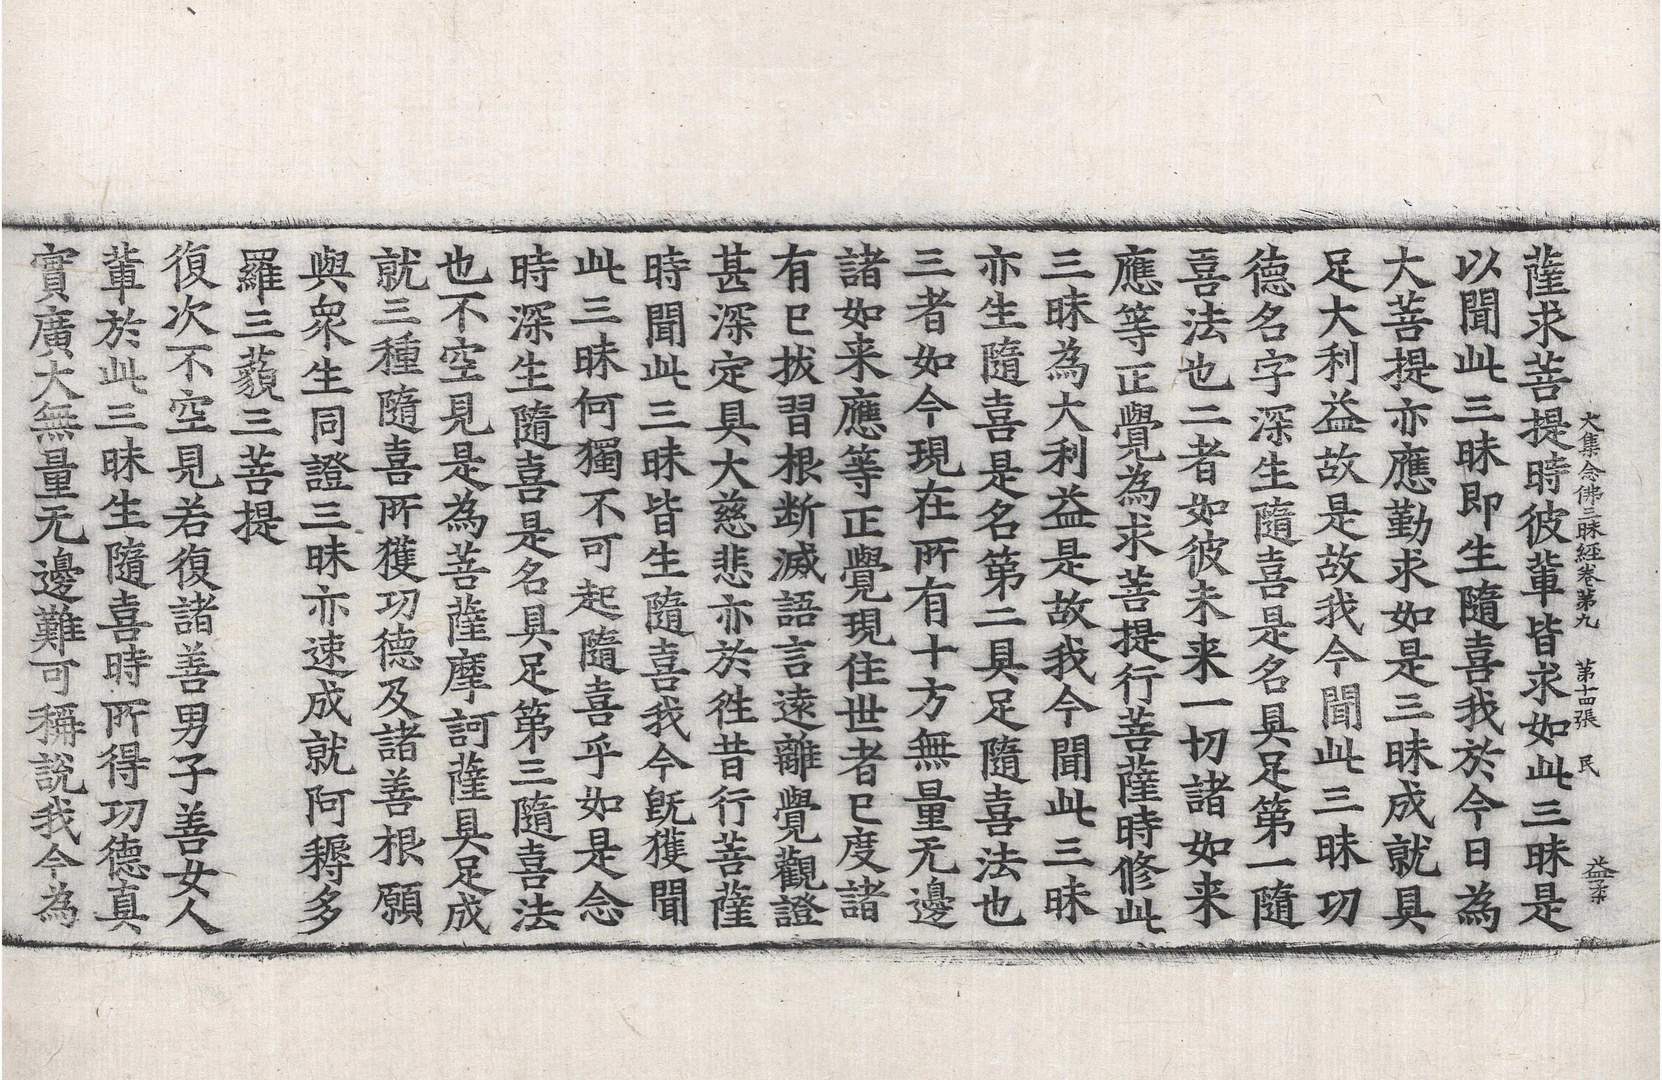 大集念佛三昧經卷第九　第十四張　民
薩求菩提時彼輩皆求如此三昧是
以聞此三昧即生隨喜我於今日為
大菩提亦應勤求如是三昧成就具
足大利益故是故我今聞此三昧功
德名字深生隨喜是名具足第一隨
喜法也二者如彼未来一切諸如来
應等正覺為求菩提行菩薩時修此
三昧為大利益是故我今聞此三昧
亦生隨喜是名第二具足隨喜法也
三者如今現在所有十方無量无邊
諸如来應等正覺現住世者已度諸
有已拔習根断滅語言遠離覺觀證
甚深定具大慈悲亦於徃昔行菩薩
時聞此三昧皆生隨喜我今旣獲聞
此三昧何獨不可起隨喜乎如是念
時深生隨喜是名具足第三隨喜法
也不空見是為菩薩摩訶薩具足成
就三種隨喜所獲功德及諸善根願
與衆生同證三昧亦速成就阿耨多
羅三藐三菩提
復次不空見若復諸善男子善女人
輩於此三昧生隨喜時所得功德真
實廣大無量无邊難可稱說我今為